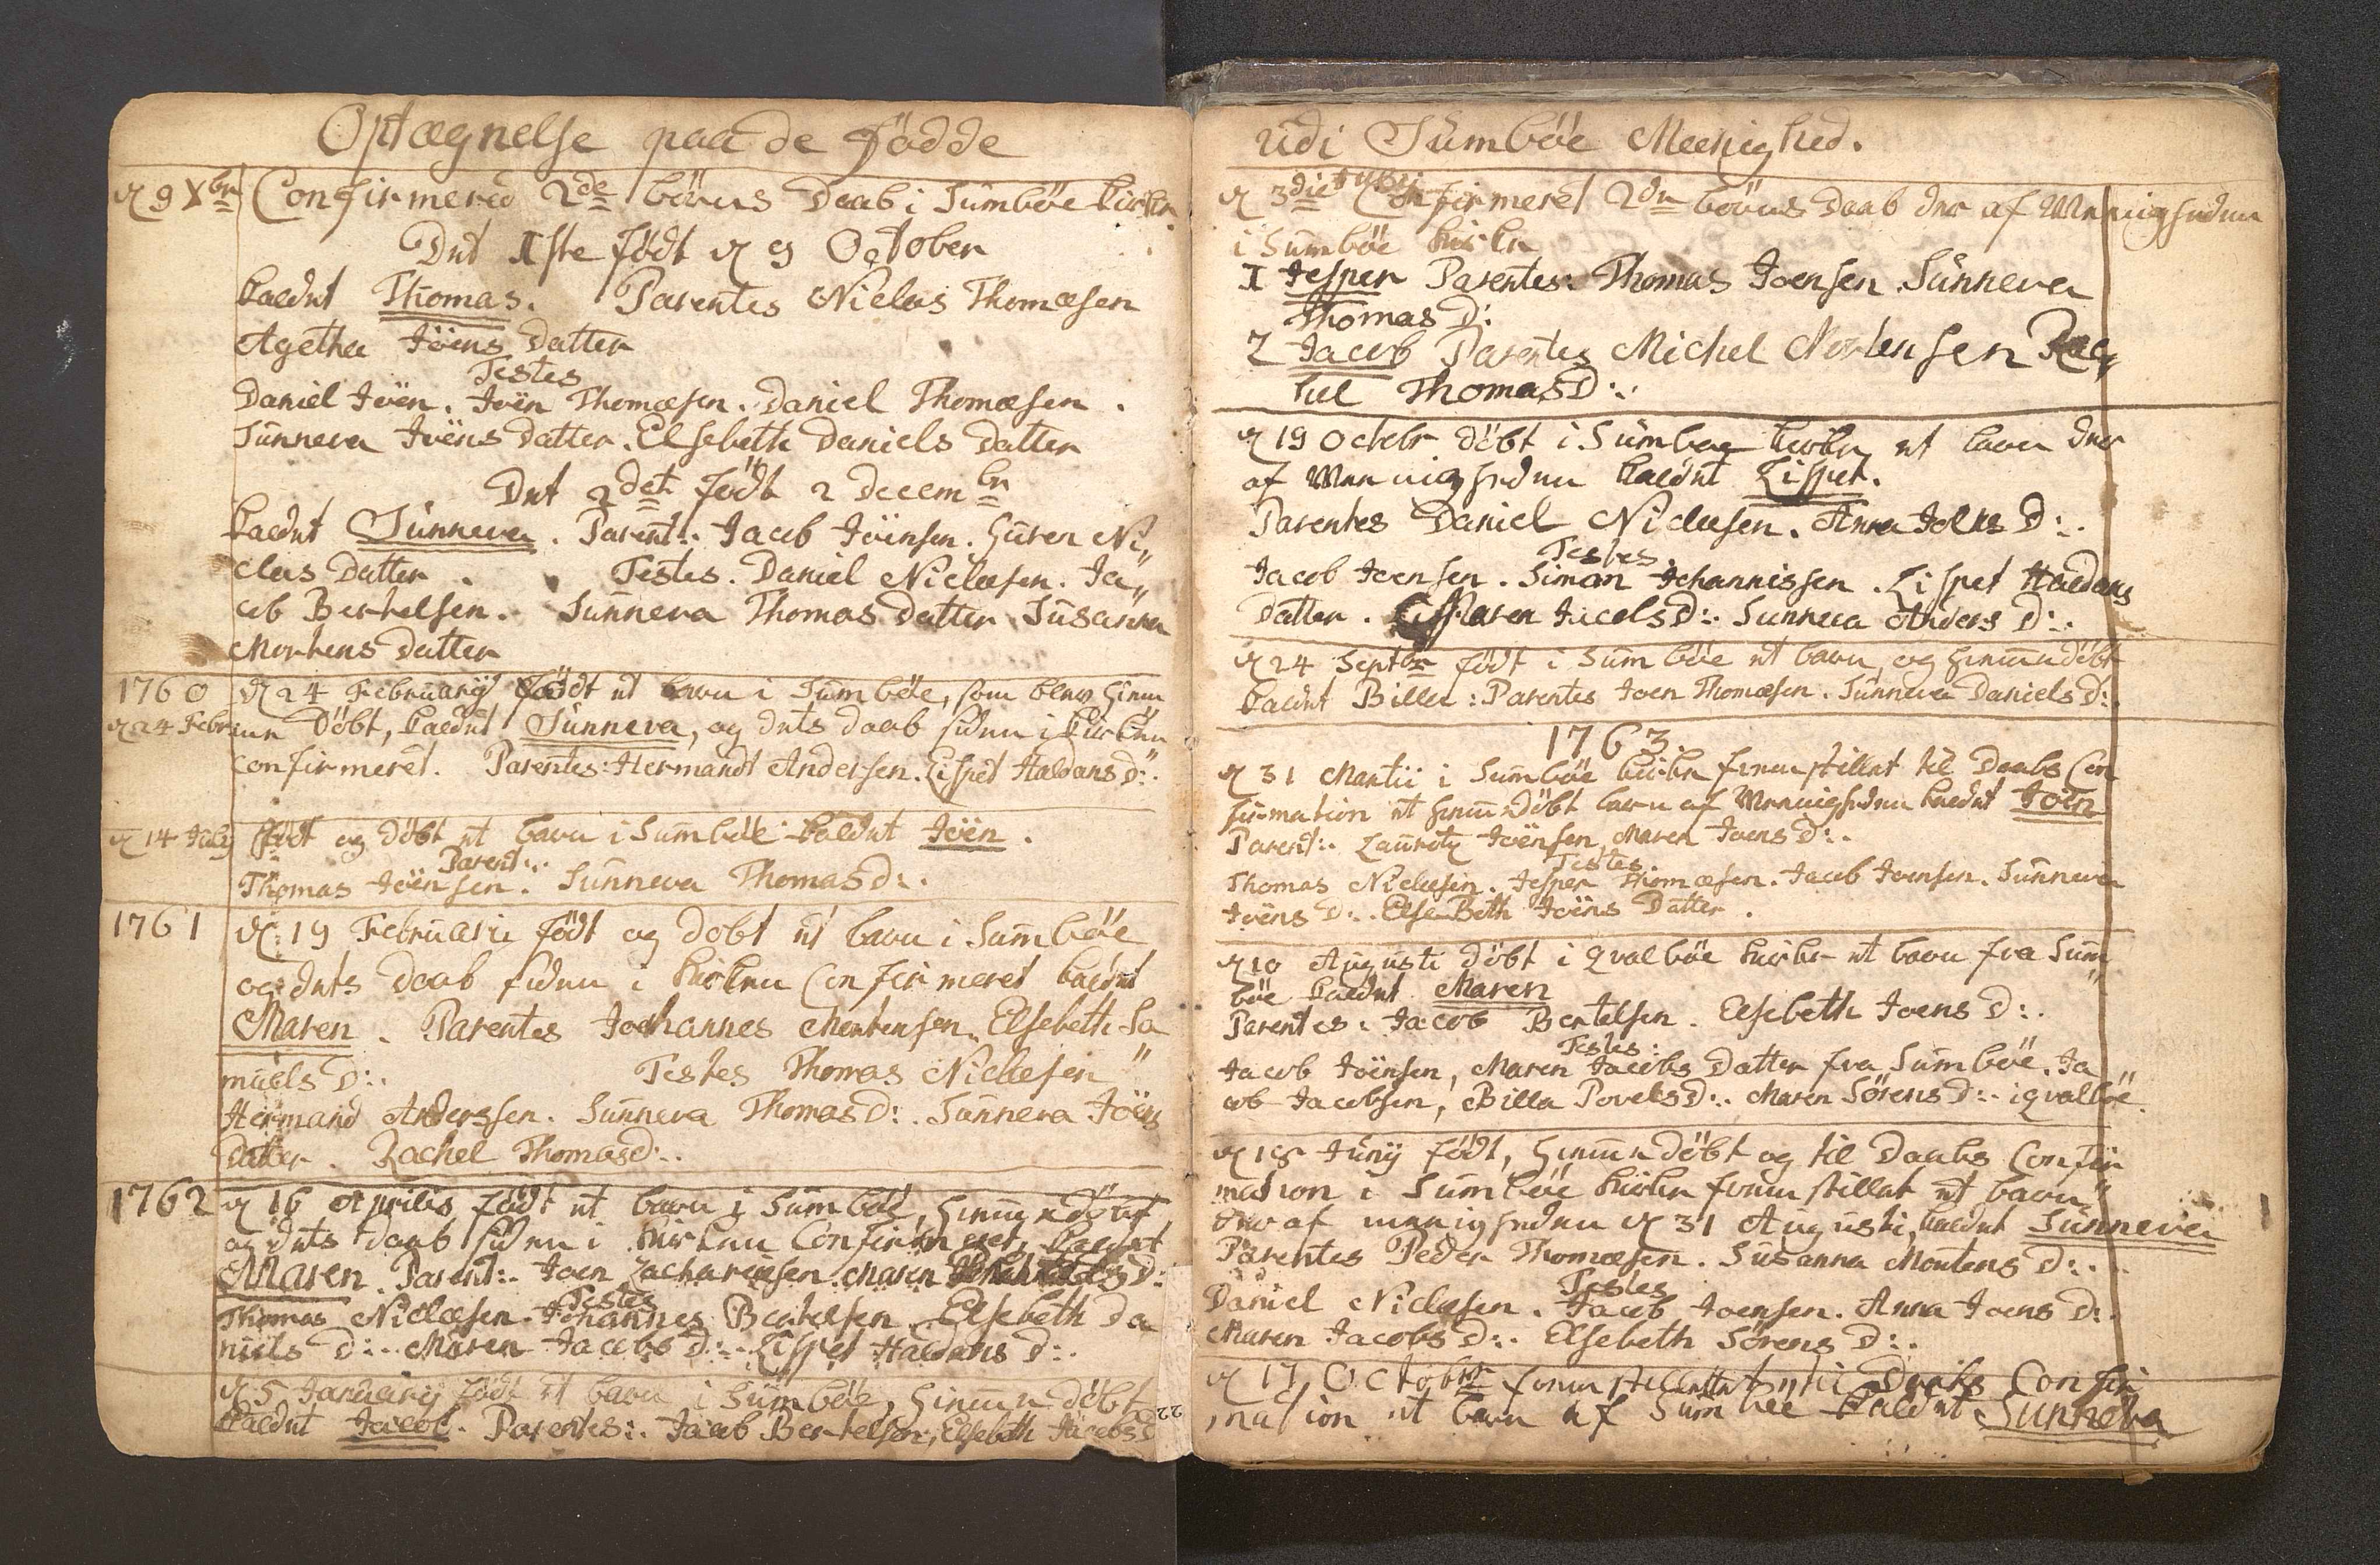 Optægnelse paa de Fødde
d 9 Xbr Confirmered 2de børns Daab i Sumbøe Kirke
Det 1ste født d 9 October
kaldet Thomas. Parentes Niclas Thomæsen
Agetha Jöens Datter
Testes
Daniel Jöen. Jöen Thomæsen. Daniel Thomæsen.
Sunneva Jöens datter. Elsebeth Daniels datter
Det 2det født 2 decembr
kaldet Sunneva. Parent:. Jacob Jöensen. Ni„
clas Datter. Testes. Daniel Niclæsen. Ja„
cob Bertelsen. Sunneva Thomas datter Susanna
Mortens datter
1760 d 24 February født et barn i Sumbøe, som blev hiem
d 24 Febr me Döbt, kaldet Sunneva, og dets daab siden i kirken
confirmeret. Parentes: Hermandt Andersen. Lispet Haldans d:.
d 14 July født og døbt et barn i Sumbøe kaldet Jöen.
Parent:.
Thomas Jöensen. Sunneva Thomasd:.
1761 d: 19 Februarii født og døbt et barn i Sumbøe
og dets daab siden i kirken Confirmeret kaldet
Maren. Parentes Johannes Mortensen. Elsebeth Sa
muels D:. Testes Thomas Niclæsen
Hermand Anderssen. Sunneva Thomas D:. Sunneva Jöens
datter. Rachel Thomasd:.
1762 d 16 Aprilis født et barn i Sumbøe, hiemmedøbt
og dets daab siden i kirken Confirmeret, kaldet
Maren. Parent:. Joen Zachariæsen. Maren D:
Testes
Thomas Niclæsen. Johannes Bertelsen. Elsebeth Da
niels D:. Maren Jacobs D:. Lispet Haldans D:.
d 5 January født et barn i Sumbøe, hiemmedøbt
kaldet Jacob. Parentes:. Jacob Bertelsen, Elsebeth Jacobs D
22
udi Sumbøe Meenighed.
d 3die Confirmeret 2de børns Daab der af Menigheden
i Sumbøe kirke
1 Jesper Parentes: Thomas Joensen Sunneva
Thomas D:
2 Jacob Parentes Michel Mortensen Rac„
hel Thomas D:.
d 19 Octobr döbt i Sumbøe kirke et barn der
af Menigheden kaldet Lisspet.
Parentes Daniel Niclæsen. Anna Joens D:.
Testes
Jacob Joensen. Simon Johannissen. Lispet Haldans
datter. Maren Jacobs D:. Sunneva Anders D:.
d 24 Septbr født i Sumbøe et barn, og hiemmedöbt
kaldet Bille: Parentes Joen Thomæsen. Sunneva Daniels D:.
1763
d 31 Martii i Sumbøe kirke fremstillet til Daabs Con
firmation et hiemmedöbt barn af Menigheden kaldet Joen
Parent:. Lauretz Joënsen, Maren Joens D:.
Testes.
Thomas Niclæsen. Jesper Thomæsen. Jacob Joensen. Sunneva
Joëns D:. ElseBeth Joëns Datter.
d 10 Augusti döbt i Qvalbøe kirke et barn fra Sum
bøe kaldet Maren
Parentes: Jacob Bertelsen. Elsebeth Joens D:.
Testes:
Jacob Joënsen, Maren Jacobs Datter fra Sumbøe. Ja„
cob Jacobsen, Billa Povels D:. Maren Sörens D:. i qvalbøe.
d 18 Juny født, hiemmedöbt og til Daabs Confir
mation i Sumbøe kirke fremstillet et barn
der af menigheden d 31 Augusti, kaldet Sunneva
Parentes Peder Thomæsen. Susanna Mortens D:.
Testes
Daniel Niclæsen. Jacob Joensen. Anna Joens D:.
Maren Jacobs D:. Elsebeth Sörens D:.
d 17 Octobr fremstillet til Daabs Confir
mation et barn af Sumbøe kaldet Sunneva